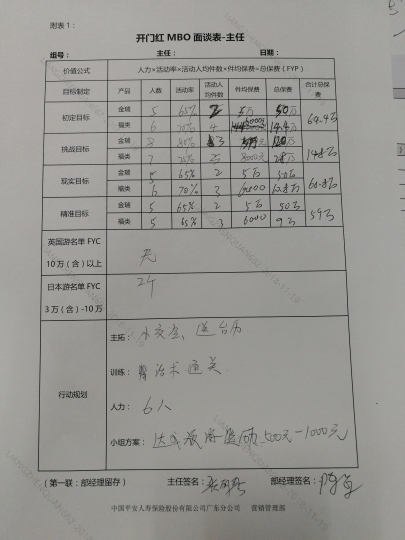 附表1：
开门红 MBO 面谈表-主任
组号： 主任： 日期：
价值公式 人力×活动率×活动人均件数×件均保费=总保费（FYP）
目标制定 产品 人数 活动率 活动人均件数 件均保费 总保费 合计总保费
初定目标 金瑞 5 65% 2 5万 50万 64.4万
福类 6 70% 4 6000 14.4万
挑战目标 金瑞 8 80% 3 120万 148万
福类 7 8000元 28万
现实目标 金瑞 5 65% 2 5万 50万 60.8万
福类 6 70% 3 6000 10.8万
精准目标 金瑞 5 65% 2 5万 50万 59万
福类 5 65% 3 6000 9万
英国游名单 FYC
10万（含）以上 无
日本游名单 FYC 2个
3万（含）-10万
行动规划
主拓： 小交会、送台历
训练： 话术通关
人力： 6人
小组方案： 达成 500元-1000元
（第一联：部经理留存） 主任签名： 部经理签名：
中国平安人寿保险股份有限公司广东分公司 营销管理部